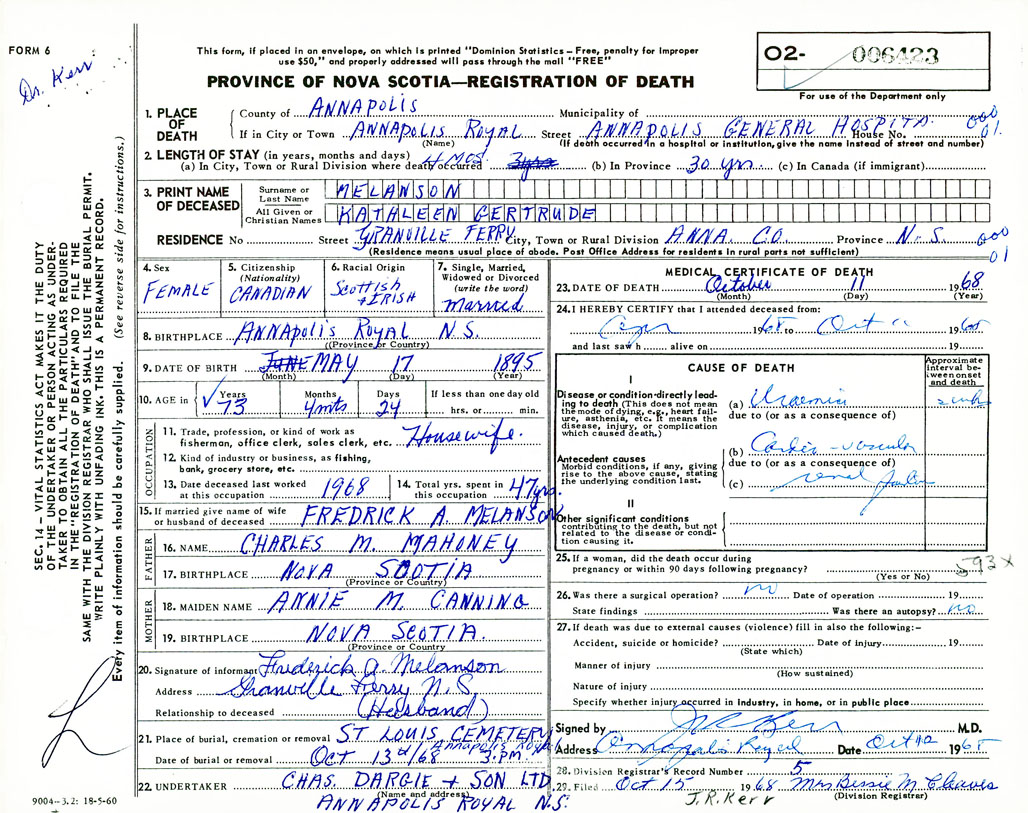 FORM 6
Dr. Kerr
This form, if placed in an envelope, on which is printed "Dominion Statistics – Free, penalty for improper
use $50," and properly addressed will pass through the mail "FREE"
PROVINCE OF NOVA SCOTIA—REGISTRATION OF DEATH
O2- 006423
For use of the Department only
1. PLACE OF DEATH County of ANNAPOLIS Municipality of
If in City or Town ANNAPOLIS ROYAL Street ANNAPOLIS GENERAL HOSPITA. House No. 000 01
(Name) (If death occurred in a hospital or institution, give the name instead of street and number)
2. LENGTH OF STAY (in years, months and days)
(a) In City, Town or Rural Division where death occurred 4 MOS. 3 yrs (b) In Province 30 yrs. (c) In Canada (if immigrant)
3. PRINT NAME OF DECEASED Surname or Last Name MELANSON
All Given or Christian Names KATHLEEN GERTRUDE
RESIDENCE No Street GRANVILLE FERRY City, Town or Rural Division ANNA. CO. Province N.S. 000 01
(Residence means usual place of abode. Post Office Address for residents in rural parts not sufficient)
4. Sex FEMALE
5. Citizenship (Nationality) CANADIAN
6. Racial Origin Scottish + IRISH
7. Single, Married, Widowed or Divorced (write the word) Married
8. BIRTHPLACE ANNApolis ROYAL N.S.
(Province or Country)
9. DATE OF BIRTH JUNE MAY 17 1895
(Month) (Day) (Year)
10. AGE in Years 73 Months 4mts Days 24 If less than one day old hrs. or min.
OCCUPATION
11. Trade, profession, or kind of work as
fisherman, office clerk, sales clerk, etc. Housewife.
12. Kind of industry or business, as fishing,
bank, grocery store, etc.
13. Date deceased last worked at this occupation 1968
14. Total yrs. spent in this occupation 47 yrs.
15. If married give name of wife
or husband of deceased FREDRICK A. MELANSON
FATHER
16. NAME CHARLES M. MAHONEY
17. BIRTHPLACE NOVA SCOTIA
(Province or Country)
MOTHER
18. MAIDEN NAME ANNIE M. CANNING
19. BIRTHPLACE NOVA SCOTIA.
(Province or Country
20. Signature of informant Frederick A. Melanson
Address Granville Ferry N.S.
Relationship to deceased (Husband)
21. Place of burial, cremation or removal ST LOUIS CEMETERY
Annapolis Royal
Date of burial or removal OCT 13d/68 3.P.M.
22. UNDERTAKER CHAS. DARGIE + SON LTD
(Name and address)
ANNAPOLIS ROYAL N.S.
MEDICAL CERTIFICATE OF DEATH
23. DATE OF DEATH October 11 1968
(Month) (Day) (Year)
24. I HEREBY CERTIFY that I attended deceased from:
1968 to Oct 11 1968
and last saw h alive on 19
CAUSE OF DEATH
Approximate interval between onset and death
I
Disease or condition directly leading to death (This does not mean the mode of dying, e.g., heart failure, asthenia, etc. It means the disease, injury, or complication which caused death.)
(a) Uraemia 2 wks
due to (or as a consequence of)
Antecedent causes
Morbid conditions, if any, giving rise to the above cause, stating the underlying condition last.
(b) Cardio-vascular
due to (or as a consequence of)
(c) renal failure
II
Other significant conditions
contributing to the death, but not related to the disease or condition causing it.
25. If a woman, did the death occur during
pregnancy or within 90 days following pregnancy?
(Yes or No)
593 X
26. Was there a surgical operation? no Date of operation 19
State findings Was there an autopsy? no
27. If death was due to external causes (violence) fill in also the following:-
Accident, suicide or homicide? Date of injury 19
(State which)
Manner of injury
(How sustained)
Nature of injury
Specify whether injury occurred in industry, in home, or in public place
Signed by J R Kerr M.D.
Address Annapolis Royal Date Oct 12 1968
28. Division Registrar's Record Number 5
29. Filed Oct 15 1968 Mrs Bessie M. Cleaves
J.R. Kerr (Division Registrar)
SEC. 14 – VITAL STATISTICS ACT MAKES IT THE DUTY
OF THE UNDERTAKER OR PERSON ACTING AS UNDER-
TAKER TO OBTAIN ALL THE PARTICULARS REQUIRED
IN THE "REGISTRATION OF DEATH" AND TO FILE THE
SAME WITH THE DIVISION REGISTRAR WHO SHALL ISSUE THE BURIAL PERMIT.
WRITE PLAINLY WITH UNFADING INK. THIS IS A PERMANENT RECORD.
Every item of information should be carefully supplied. (See reverse side for instructions.)
9004–3.2: 18-5-60